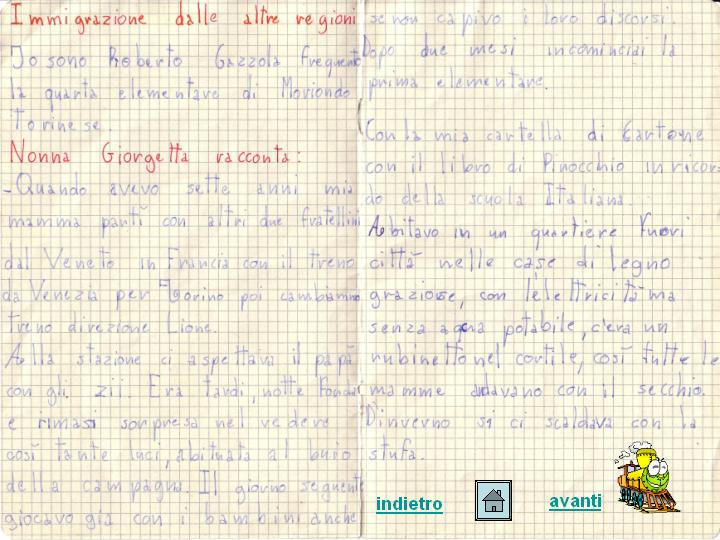 Immigrazione dalle altre regioni
Io sono Roberto Gazzola frequento
la quarta elementare di Moriondo
Torinese.
Nonna Giorgetta racconta:
-Quando avevo sette anni mia
mamma partì con altri due fratellini
dal Veneto in Francia con il treno
da Venezia per Torino poi cambiammo
treno direzione Lione.
Alla stazione ci aspettava il papà
con gli zii. Era tardi, notte fonda
e rimasi sorpresa nel vedere
così tante luci, abituata al buio
della campagna Il giorno seguente
giocavo già con i bambini anche
se non capivo i loro discorsi.
Dopo due mesi incominciai la
prima elementare.
Con la mia cartella di cartone
con il libro di Pinocchio in ricor-
do della scuola Italiana.
Abitavo in un quartiere fuori
città nelle case di legno
graziose, con l'elettricità ma
senza acqua potabile, c'era un
rubinetto nel cortile, così tutte le
mamme andavano con il secchio.
D'inverno si ci scaldava con la
stufa.
indietro
avanti